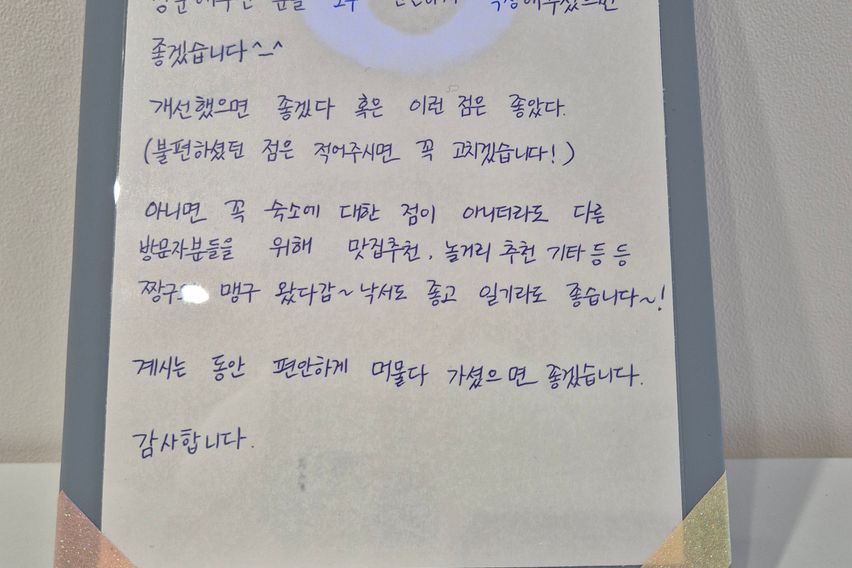 분들 모두
좋겠습니다^-^
개선했으면 좋겠다 혹은 이런 점은 좋았다.
(불편하셨던 점은 적어주시면 꼭 고치겠습니다!)
아니면 꼭 숙소에 대한 점이 아니더라도 다른
방문자분들을 위해 맛집추천, 놀거리 추천 기타 등 등
맹구 왔다감~ 낙서도 좋고 일기라도 좋습니다~!
계시는 동안 편안하게 머물다 가셨으면 좋겠습니다.
감사합니다.